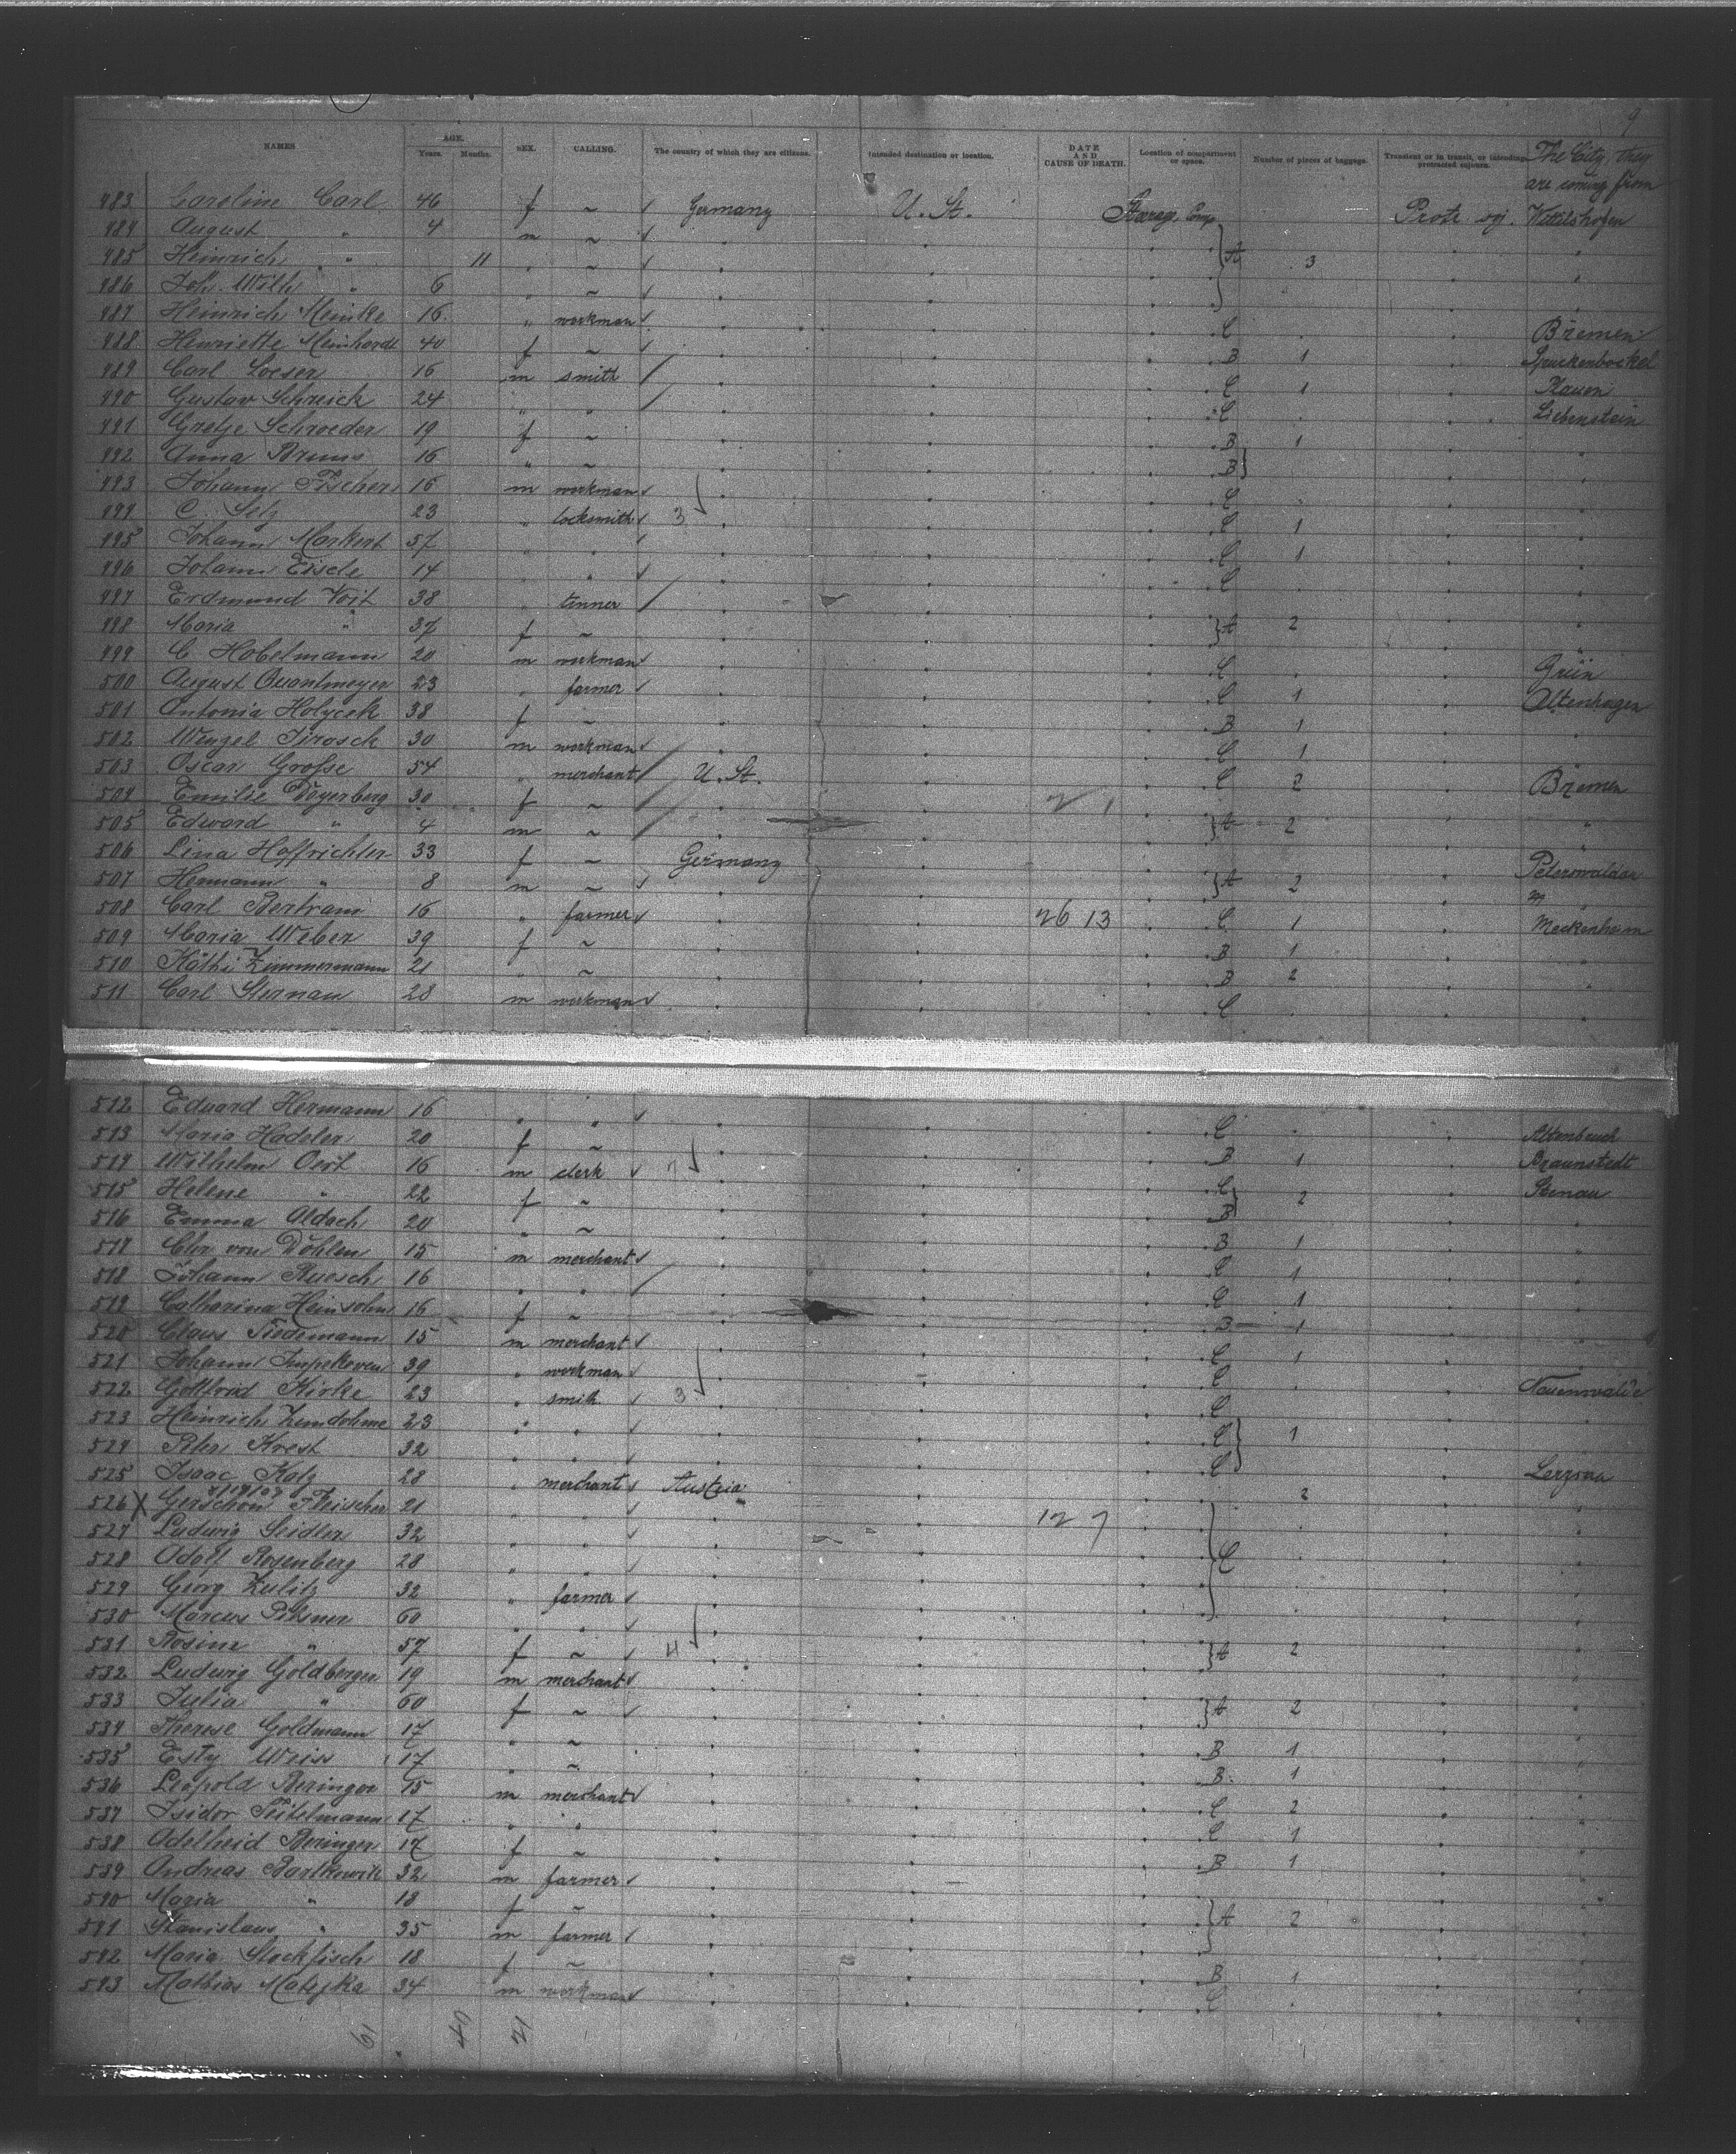 9
NAMES AGE. Years. Months. SEX. CALLING. The country of which they are citizens. Intended destination or location. DATE AND CAUSE OF DEATH. Location of compartment or space. Number of pieces of baggage. Transient or in transit, or intending protracted sojourn. The City, they are coming from
483 Caroline Carl 46 f ~ Germany U. St. Steerage Comp Protr soj.
484 August " 4 m ~
485 Heinrich " 11 " ~ A 3
486 Joh. Wilh " 6 " ~
487 Heinrich Meinke 16 " workman C Bremen
488 Henriette Meinhardt 40 f ~ B 1
489 Carl Loeser 16 m smith C 1 Plauen
490 Gustav Schreick 24 " " C Liebenstein
491 Gretje Schroeder 19 f ~ B 1
492 Anna Bruns 16 " ~ B
493 Johann 16 m workman C
494 C. Selz 23 " locksmith 3 C 1
495 Johann Markert 57 " " C 1
496 Johann Eisele 14 " " C
497 Erdmund Voit 38 " tinner
498 Maria " 37 f ~ A 2
499 C. Hobelmann 20 m workman C Grün
500 August Quantmeyer 23 " farmer C 1 Altenhagen
501 Antonia Holycek 38 f ~ B 1
502 Wenzel Jirosck 30 m workman C 1
503 Oscar Grosse 54 " merchant U. St. C 2 Bremen
504 Emilie Weyerberg 30 f ~ 2 1
505 Edward " 4 m ~ A 2 "
506 Lina Hoffrichter 33 f ~ Germany Peterswaldau
507 Hermann " 8 m ~ A 2
508 Carl Bertram 16 " farmer 26 13 C 1 Meckenheim
509 Maria Weber 39 f ~ B 1
510 Käthi Zimmermann 21 " ~ B 2
511 Carl Sternau 28 m workman C
512 Eduard Hermann 16 " " C Altenbruch
513 Maria Hadeler 20 f ~ B 1 Braunstedt
514 Wilhelm Oest 16 m clerk 7 C Stenau
515 Helene " 22 f ~ B 2
516 Emma Aldach 20 " ~ B 1
517 Chr von Döhlen 15 m merchant C 1
518 Johann Ruesch 16 " " C 1
519 Catharina Heinsohn 16 f ~ B 1
520 Claus Tiedemann 15 m merchant C 1
521 Johann Impekoven 39 " workman C
522 Gottfried 23 " smith 3 C
523 Heinrich 23 " " C 1
524 Peter Krest 32 " " C
525 Isaac Katz 28 " merchant Austria 2
526 X Gerschon Fleischer 21 " "
527 Ludwig Seidler 32 " " 12 7
528 Adolf Rosenberg 28 " " C
529 Georg Zulitz 32 " farmer
530 Marcus Pilsner 60 " "
531 Rosine " 57 f ~ 4 A 2
532 Ludwig Goldberger 19 m merchant
533 Julia " 60 f ~ A 2
534 Therese Goldmann 17 " ~
535 Esty Weiss 17 " ~ B 1
536 Leopold Beringer 15 m merchant C 2
537 Isidor Teitelmann 17 " " C 1
538 Adelheid Beringer 17 f ~ B 1
539 Andreas 32 m farmer
540 Maria " 18 f ~
541 Stanislaus " 35 m farmer A 2
542 Maria Stockfisch 18 f ~ B 1
543 Mathias Matejka 34 m workman C
19 40 21